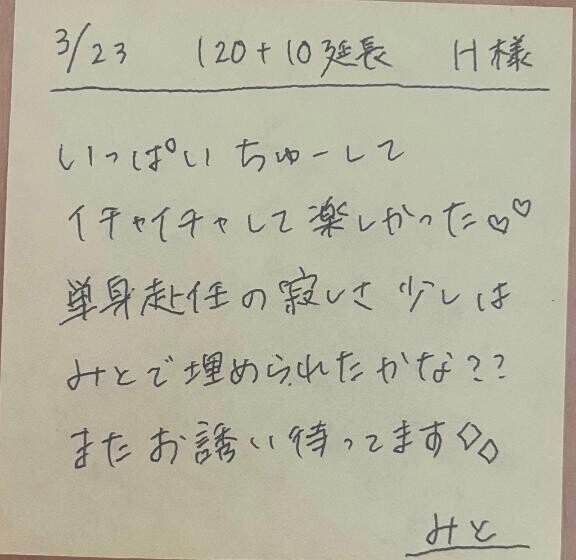 3/23 120+10延長 H様
いっぱいちゅーして
イチャイチャして楽しかった♡♡
単身赴任の寂しさ少しは
みとで埋められたかな??
またお誘い待ってます◇◇
みと